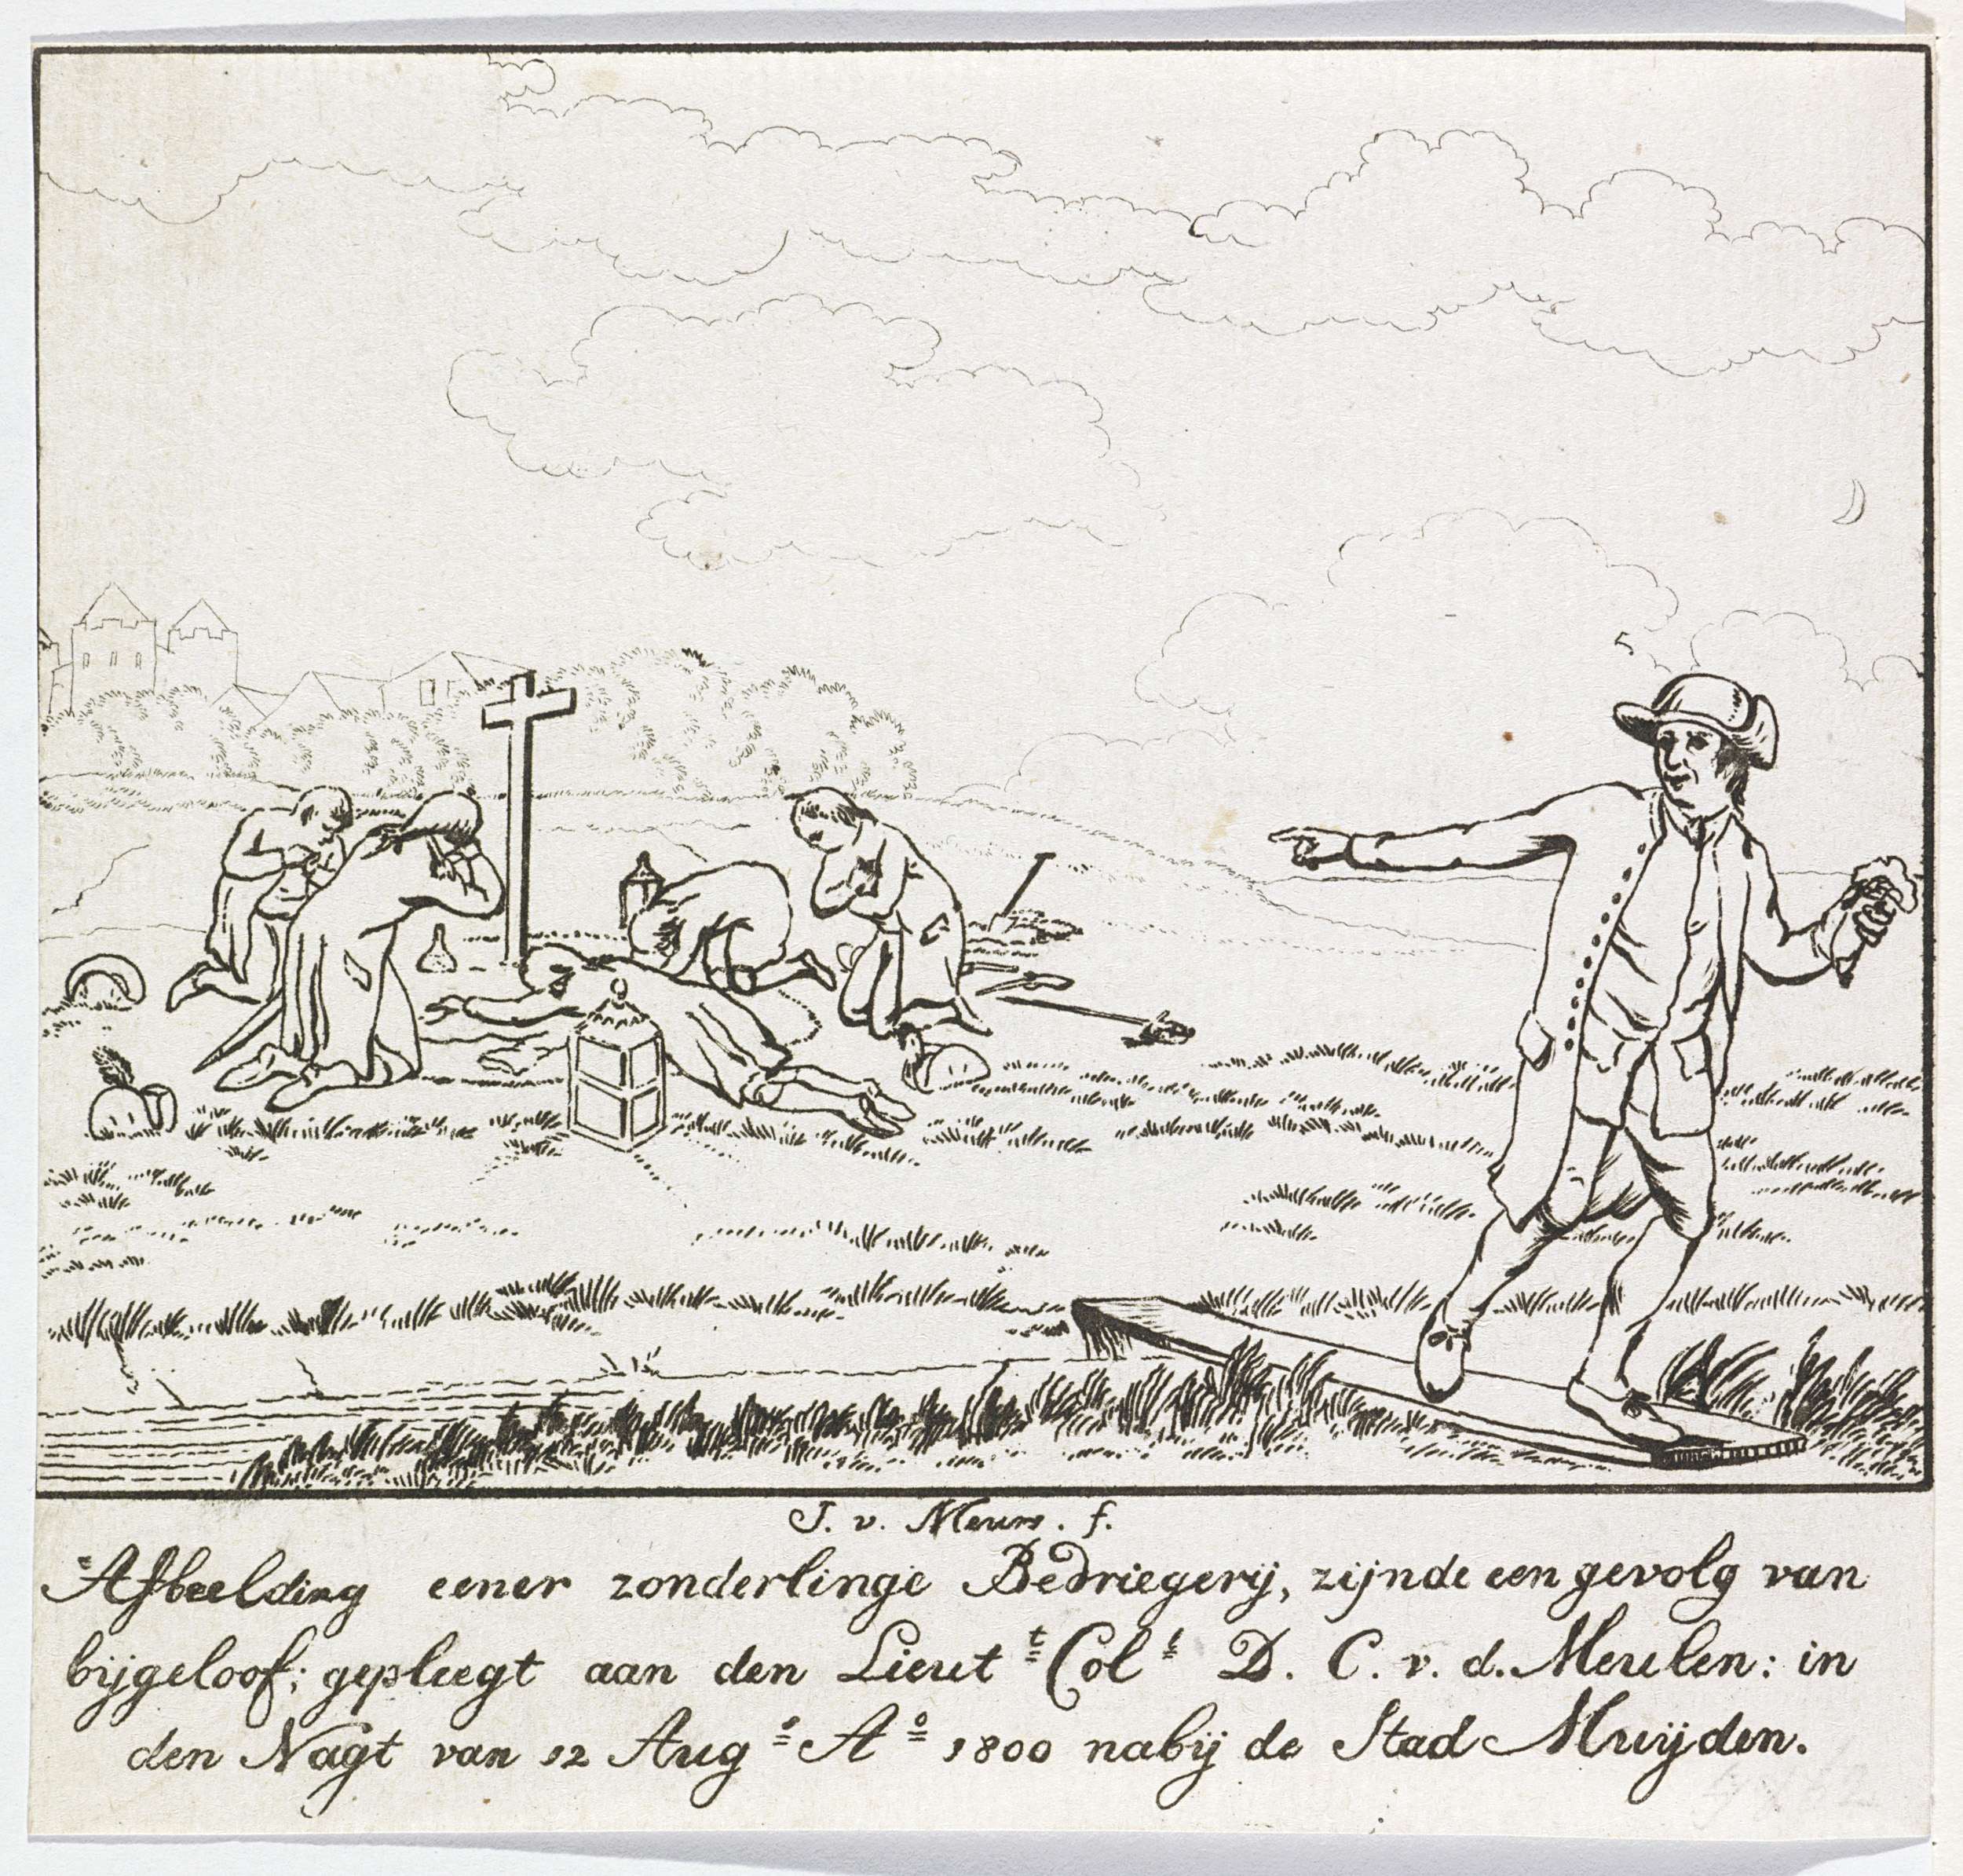 J. v. Meurs. f.
Afbeelding eener zonderlinge Bedriegerij, zijnde een gevolg van
bijgeloof; gepleegt aan den Lieut.ᵗ Col.ˡ D. C. v. d. Meulen: in
den Nagt van 12 Aug.ˢ Aº 1800 nabij de Stad Muijden.